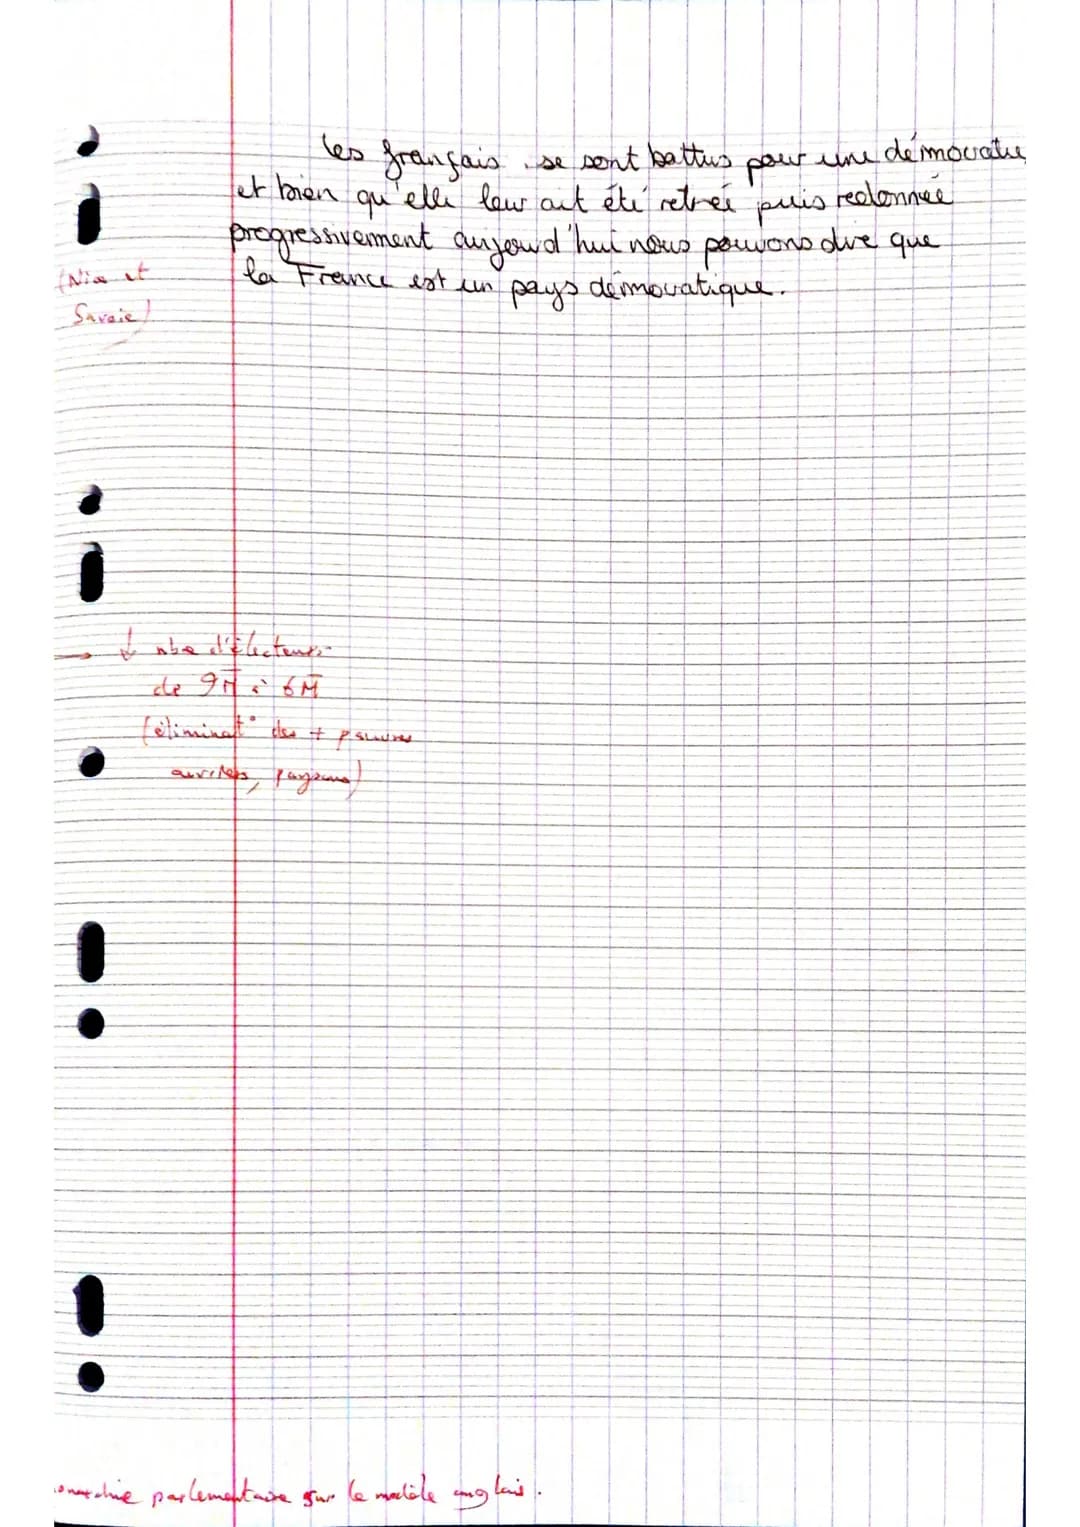 les français se sont battus pour une démocratie
et bien qu'elle leur ait été retirée puis redonnée
progressivement aujourd'hui nous pouvons dire que
la France est un pays démocratique.
(Nice et
Savoie)
→ ↓ nbre d'électeurs
de 9M à 6M
(éliminat° des + pauvres
ouvriers, paysans)
onarchie parlementaire sur le modèle anglais.